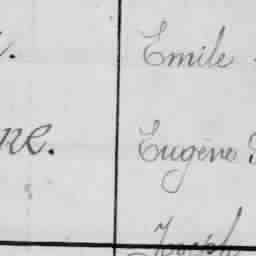 Emile
ne. Eugène
Joseph